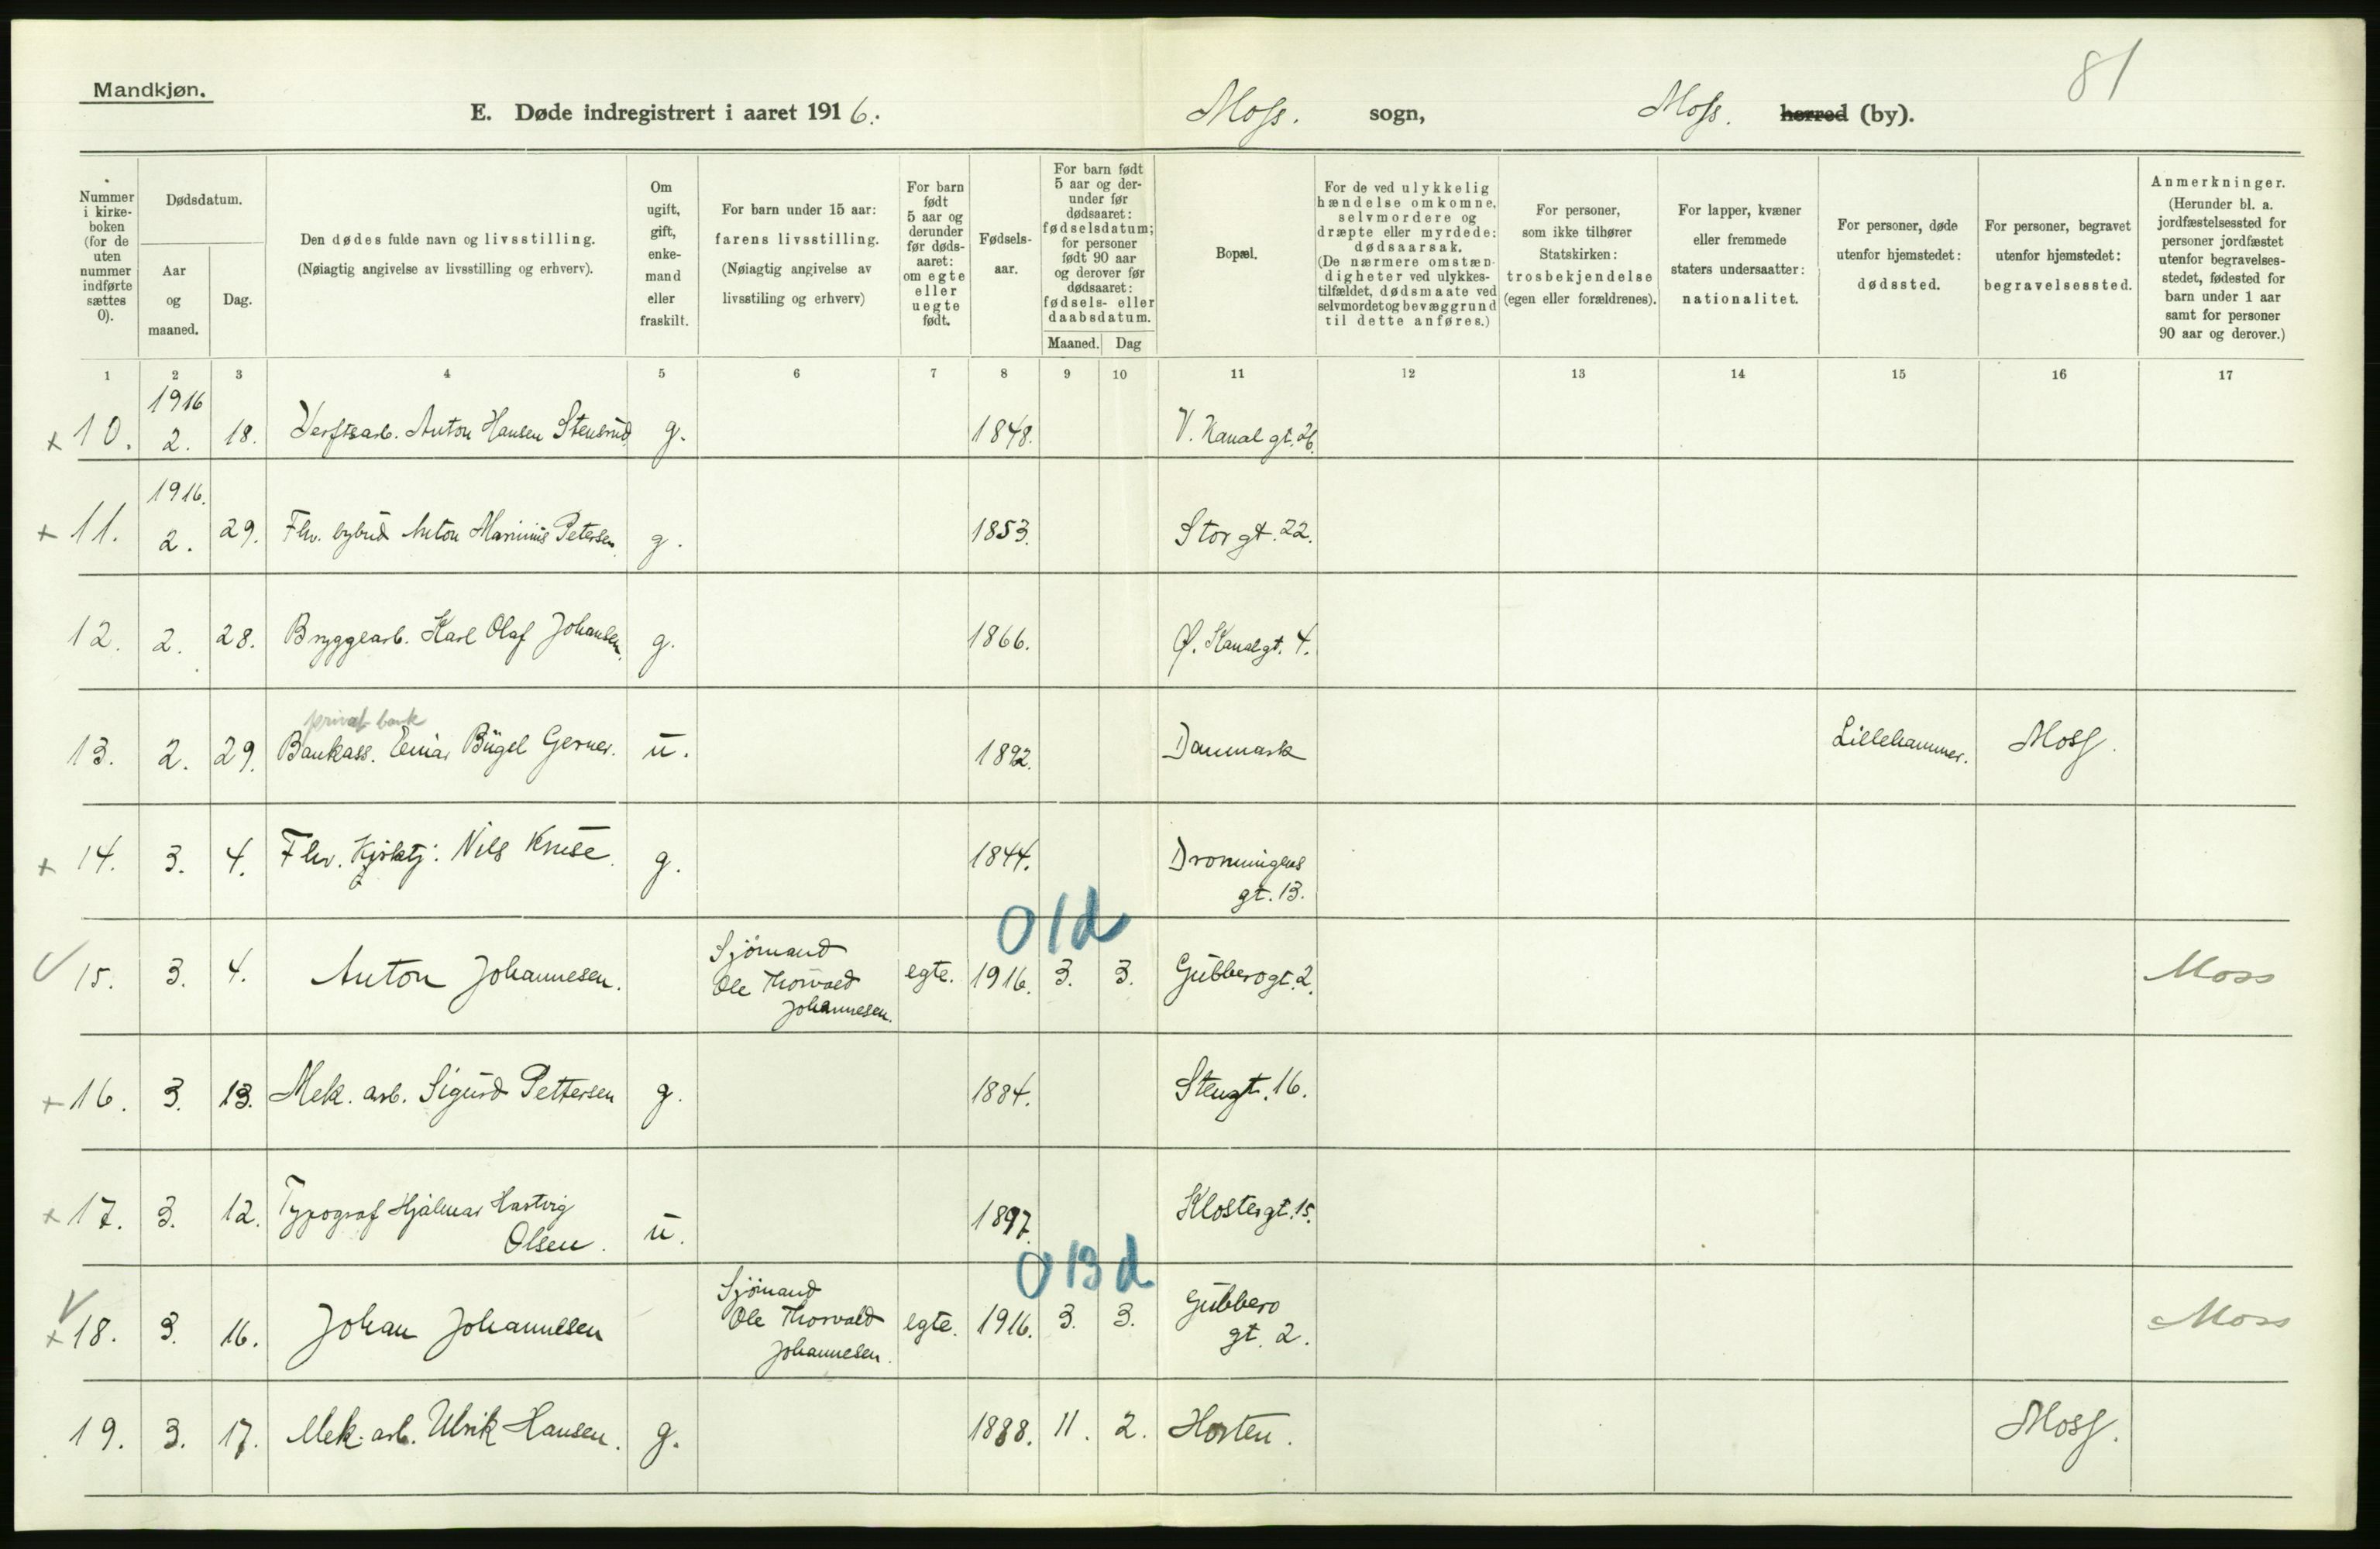 81
Mandkjøn.
E. Døde indregistrert i aaret 1916. Moss. sogn, Moss. herred (by).
Nummer i kirke-boken (for de uten nummer indførte sættes 0).
Dødsdatum.
Aar og maaned.
Dag.
Den dødes fulde navn og livsstilling.
(Nøiagtig angivelse av livsstilling og erhverv).
Om ugift, gift, enke-mand eller fraskilt.
For barn under 15 aar: farens livsstilling.
(Nøiagtig angivelse av livsstiling og erhverv)
For barn født 5 aar og derunder før døds-aaret: om egte eller uegte født.
Fødsels-aar.
For barn født 5 aar og der-under før dødsaaret: fødselsdatum; for personer født 90 aar og derover før dødsaaret: fødsels- eller daabsdatum.
Maaned. Dag
Bopæl.
For de ved ulykkelig hændelse omkomne, selvmordere og dræpte eller myrdede: dødsaarsak.
(De nærmere omstæn-digheter ved ulykkes-tilfældet, dødsmaate ved selvmordet og bevæggrund til dette anføres.)
For personer, som ikke tilhører Statskirken: trosbekjendelse (egen eller forældrenes).
For lapper, kvæner eller fremmede staters undersaatter: nationalitet.
For personer, døde utenfor hjemstedet: dødssted.
For personer, begravet utenfor hjemstedet: begravelsessted.
Anmerkninger.
(Herunder bl. a. jordfæstelsessted for personer jordfæstet utenfor begravelses-stedet, fødested for barn under 1 aar samt for personer 90 aar og derover.)
1 2 3 4 5 6 7 8 9 10 11 12 13 14 15 16 17
1916
+ 10. 2. 18. Verftsarb. Anton Hansen Stensrud g. 1848. V. Kanal gt. 26.
1916.
+ 11. 2. 29. Fhv. bybud Anton Marinius Petersen. g. 1853. Stor gt. 22.
12. 2. 28. Bryggearb. Karl Olaf Johansen. g. 1866. Ø. Kanalgt. 4.
privat bank
13. 2. 29. Bankass. Einar Bügel Gerner. u. 1892. Danmark Lillehammer. Moss.
+ 14. 3. 4. Fhv. Kjøktj. Nils Kruse. g. 1844. Dronningens
gt. 13.
01d
Sjömand
15. 3. 4. Anton Johannesen. Ole Thorvald egte. 1916. 3. 3. Gubberogt. 2. Moss
Johannesen.
+ 16. 3. 13. Mek. arb. Sigurd Pettersen g. 1884. Stengt. 16.
+ 17. 3. 12. Typograf Hjalmar Hartvig
Olsen. u. 1897. Klostergt. 15.
013d
Sjömand
+ 18. 3. 16. Johan Johannesen Ole Thorvald egte. 1916. 3. 3. Gubbero
gt. 2. Moss
Johannesen.
19. 3. 17. Mek. arb. Ulrik Hansen. g. 1888. 11. 2. Horten. Moss.